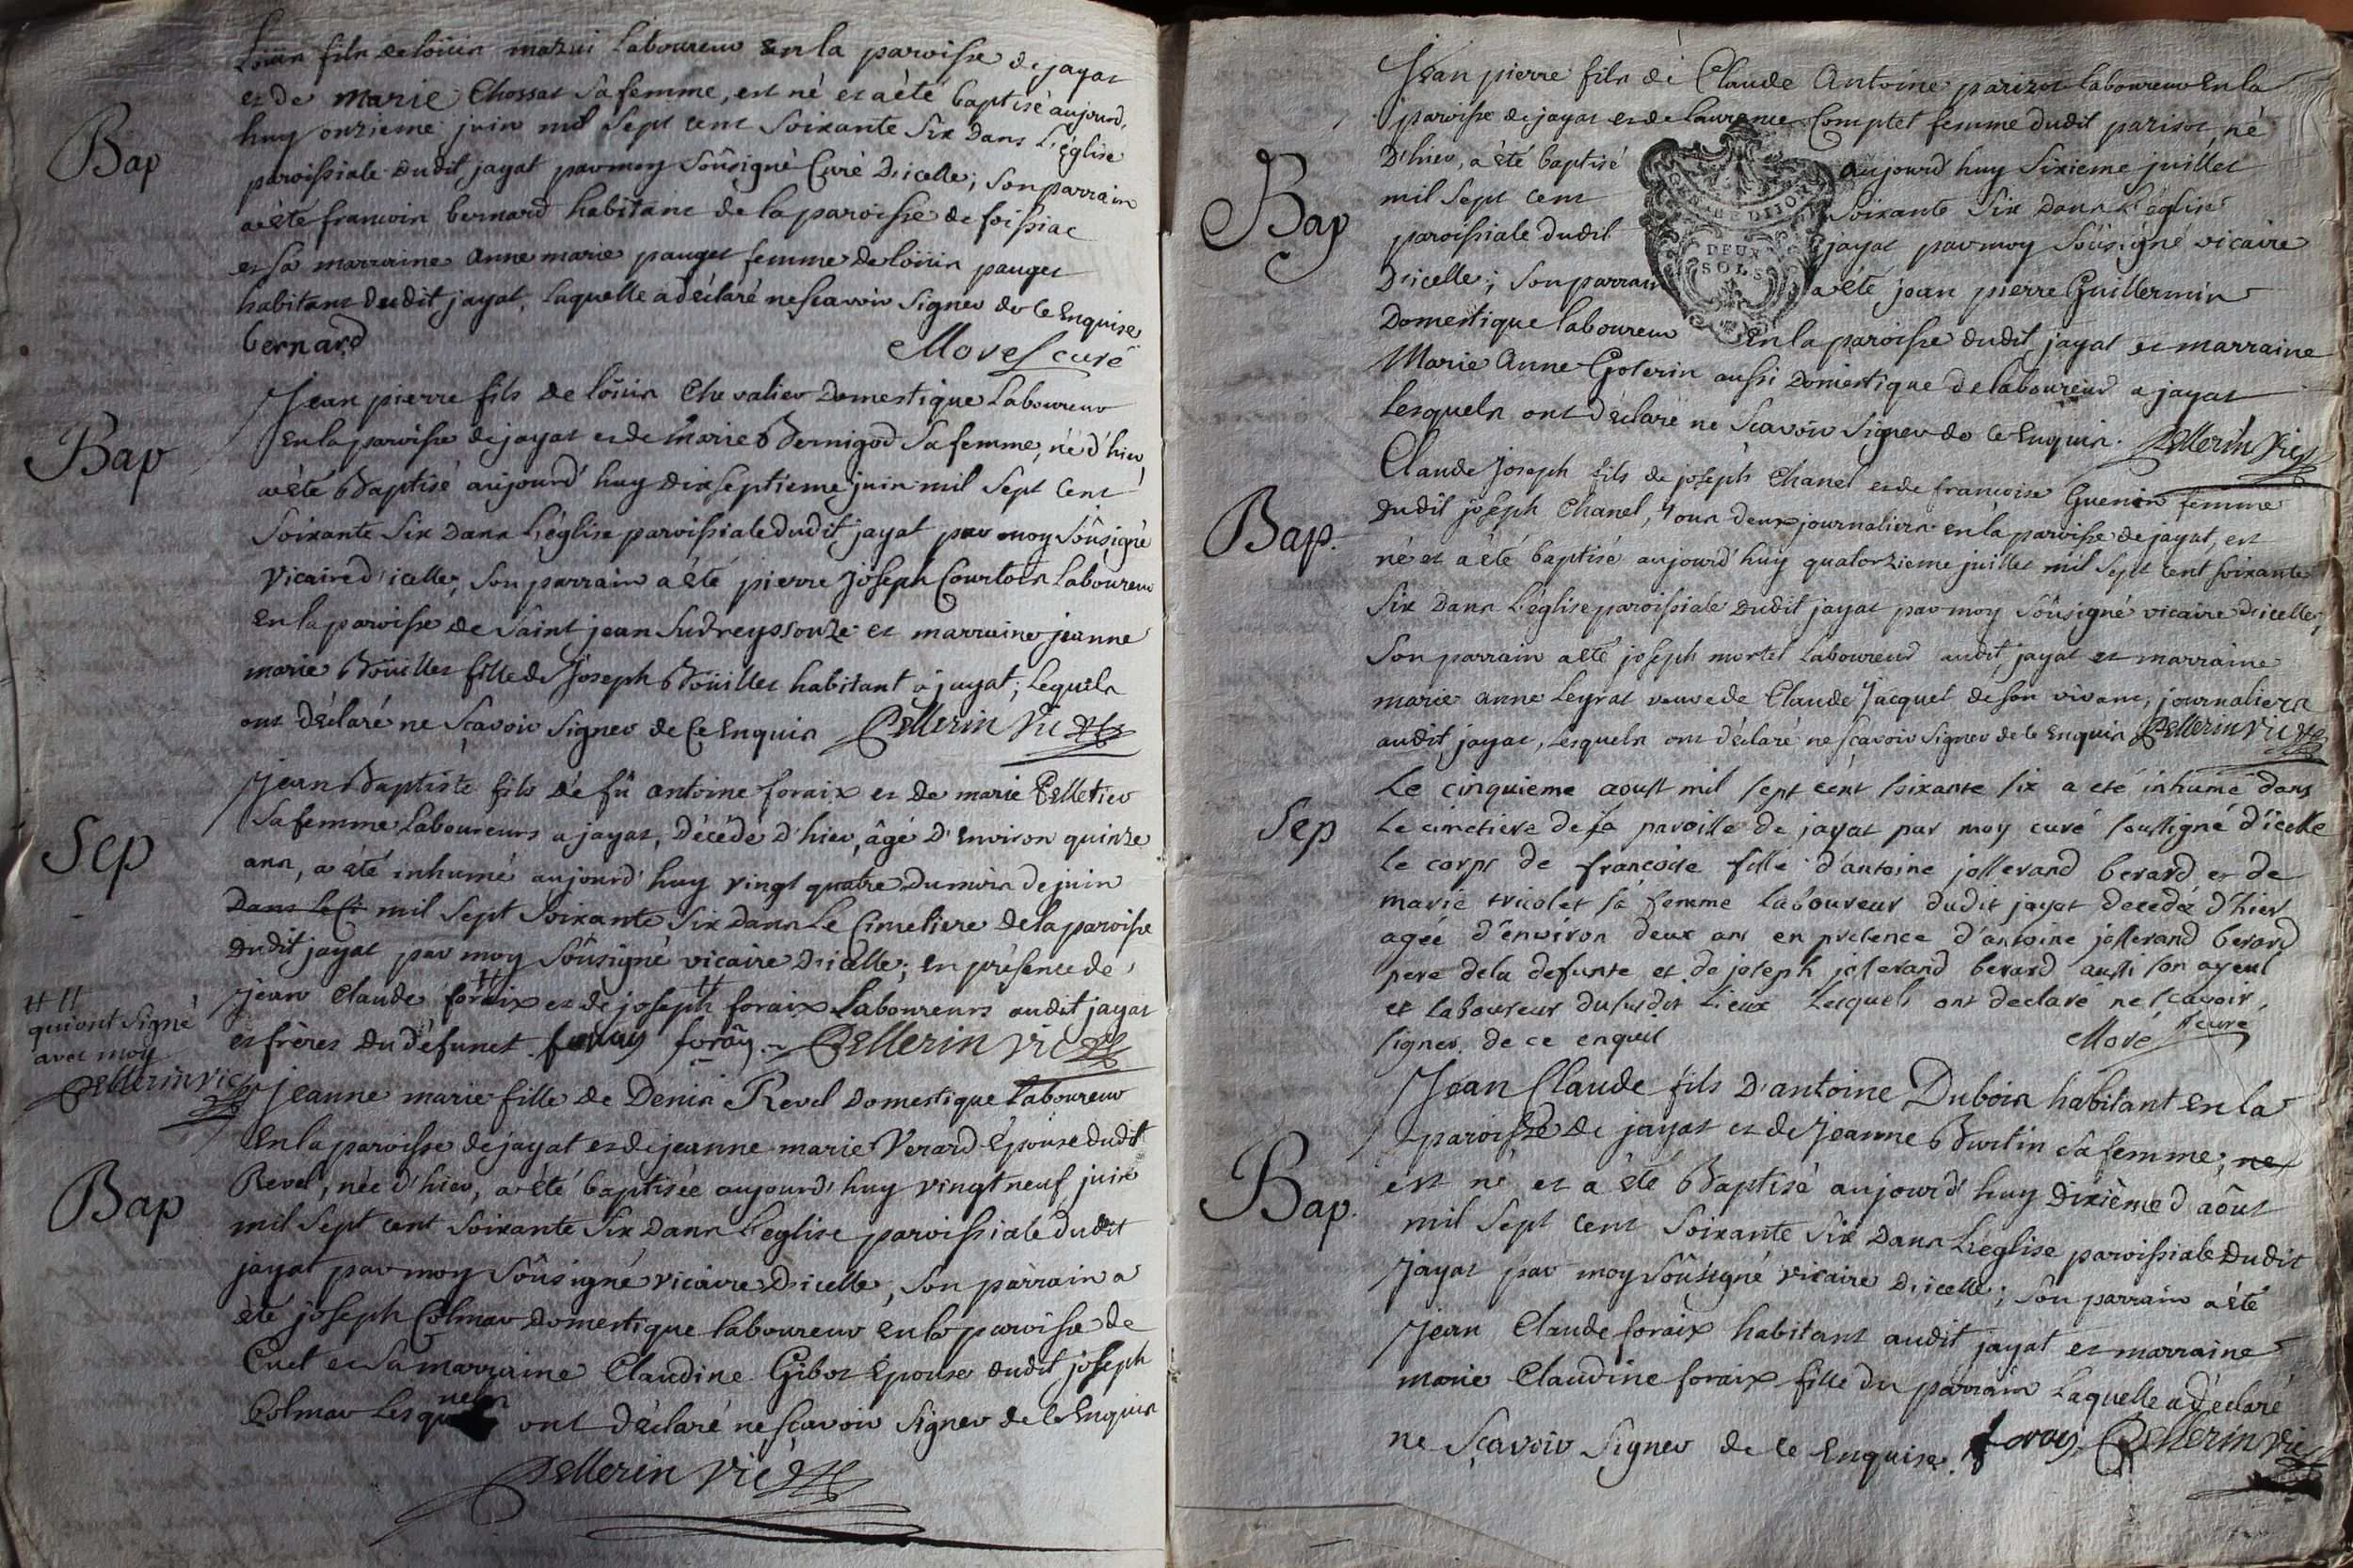 Bap
Loüis fils de loüis mazui Laboureur en la paroisse de jayat
et de marie Chossat sa femme, est né et a été baptisé aujourd'
huy onzieme juin mil Sept cent Soixante Six dans L'église
paroissiale dudit jayat par moy Soûsigné Curé d'icelle; Son parrain
a été francois bernard habitant de la paroisse de foissiac
et sa marraine anne marie pauget femme de loüis pauget
habitant dudit jayat, Laquelle a déclaré ne scavoir Signer de ce Enquise
bernard
Morel curé
Bap
Jean pierre fils de loüis Chevalier Domestique Laboureur
En la paroisse de jayat et de Marie Bernigod Sa femme, né d'hier
a été Baptisé aujourd'huy dixseptieme juin mil Sept Cent
Soixante Six Dans L'église paroissiale dudit jayat par moy Soûsigné
Vicaire d'icelle; Son parrain a été pierre joseph Courtois Laboureur
En la paroisse de Saint jean Sudreyssouze et marraine jeanne
marie Boüillet fille de Joseph Boüillet habitant a jayat; Lequels
ont déclaré ne Scavoir Signer de Ce Enquis Pellerin Vic
Sep
Jean Baptiste fils de fû antoine foraix et de marie Pelletier
Sa femme Laboureurs a jayat, décédé d'hier, âgé d'Environ quinze
ans, a été inhumé aujourd'huy vingt quatre du mois de juin
Dans Le Ci mil Sept Soixante Six dans Le Cimetiere de la paroisse
dudit jayat par moy Soûsigné vicaire d'icelle; En présence de
jean Claude foraix et de joseph foraix Laboureurs audit jayat
et frères du défunct. foray foray. Pellerin vic
qui ont Signé
avec moy
Pellerin vic
Bap
Jeanne marie fille de Denis Revel domestique Laboureur
En la paroisse de jayat et de jeanne marie Verard Epouse dudit
Revel, née d'hier, a été baptisée aujourd'huy vingt neuf juin
mil Sept cent Soixante Six dans L'eglise paroissiale dudit
jayat par moy Soûsigné vicaire d'icelle, Son parrain a
été joseph Colmar domestique laboureur en la paroisse de
Cuet et Sa marraine Claudine Gibot Epouse dudit joseph
Colmar Lesquels ont déclaré ne Scavoir Signer de Ce Enquis
Pellerin Vic
Bap
Jean pierre fils de Claude Antoine parizot laboureur En la
paroisse de jayat et de laurence Comptet femme dudit parisot, né
D'hier, a été baptisé aujourd'huy Sixieme juillet
mil Sept cent Soixante Six dans L'église
paroissiale dudit jayat par moy Soûsigné vicaire
D'icelle; Son parrain a été jean pierre Guillermin
Domestique laboureur En la paroisse dudit jayat et marraine
DEUX
SOLS
Marie Anne Goterin aussi Domestique de laboureur a jayat
Lesquels ont déclaré ne Scavoir Signer de Ce Enquis. Pellerin Vic
Bap.
Claude joseph fils de joseph Chanel et de francoise Guenin femme
dudit joseph Chanel, tous deux journaliers en la paroisse de jayat, est
né et a été baptisé aujourd'huy quatorzieme juillet mil Sept cent Soixante
Six dans L'église paroissiale dudit jayat par moy Soûsigné vicaire d'icelle,
Son parrain a été joseph mortel Laboureur audit jayat et marraine
marie anne Leyrat veuve de Claude Jacquet de Son vivant, journaliers
audit jayat, Lesquels ont déclaré ne scavoir Signer de Ce Enquis Pellerin Vic
Sep
Le cinquieme aoust mil sept cent soixante six a eté inhumé dans
Le cimetiere de la paroisse de jayat par moy curé soussigné d'icelle
le corps de francoise fille d'antoine jollerand berard et de
marie tricolet sa femme Laboureur dudit jayat decedée d'hier
agée d'environ deux ans en presence d'antoine jollerand berard
pere de la defunte et de joseph jollerand berard aussi son ayeul
et Laboureur dususdit Lieux Lesquels ont declaré ne scavoir
signer de ce enquis
Morel curé
Bap.
Jean Claude fils d'antoine Dubois habitant En la
paroisse de jayat et de Jeanne Burtin Sa femme; ne
est né et a été Baptisé aujourd'huy Dixième d'aôust
mil Sept Cent Soixante Six dans L'église paroissiale dudit
Jayat par moy Soûsigné vicaire D'icelle; Son parrain a été
Jean Claude foraix habitant audit jayat et marraine
marie Claudine foraix fille du parrain Laquelle a déclaré
ne Scavoir Signer de Ce Enquise. foray Pellerin Vic